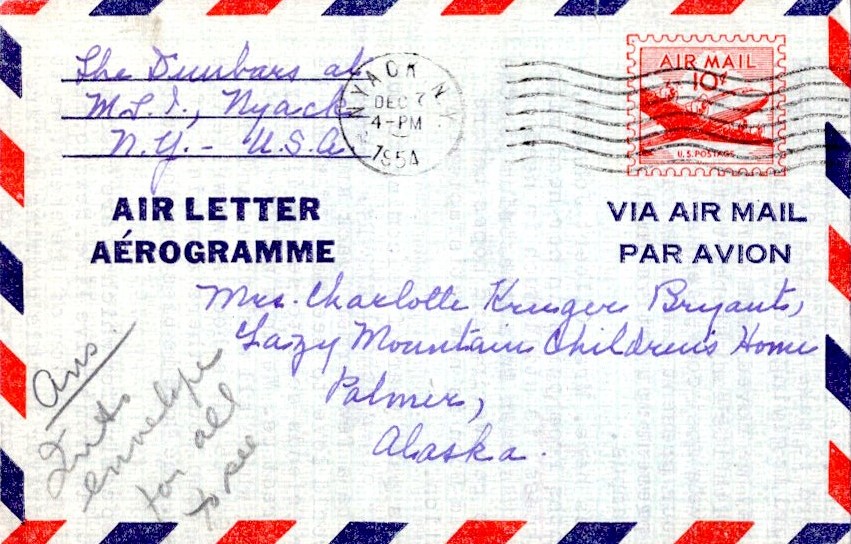 The Dunbars at
M.L.I., Nyack
N.Y. - U.S.A.
NYACK N.Y.
DEC 7
4-PM
1954
AIR MAIL
10¢
U.S. POSTAGE
AIR LETTER
AÉROGRAMME
VIA AIR MAIL
PAR AVION
Mrs. Charlotte Kruger Bryant,
Lazy Mountain Children's Home
Palmer,
Alaska.
Ans.
envelope
for all
to see